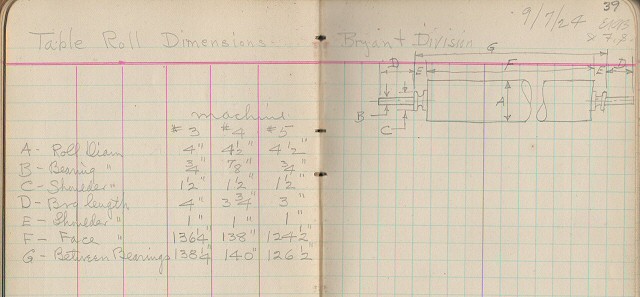 39
9/7/24
Table Roll Dimensions - Bryant Division
machine
#3 #4 #5
A - Roll Diam 4" 4½" 4½"
B - Bearing " ¾" ⅞" ¾"
C - Shoulder " 1½" 1½" 1½"
D - Brg length 4" 3¾" 3"
E - Shoulder " 1" 1" 1"
F - Face " 136¼" 138" 124½"
G - Between Bearings 138¼" 140" 126½"
G
D E F E D
A
B
C